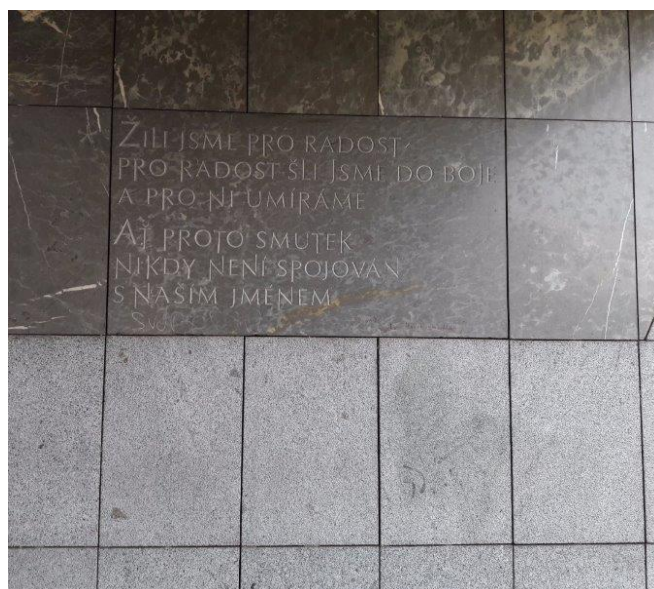 ŽILI JSME PRO RADOST,
PRO RADOST ŠLI JSME DO BOJE
A PRO NI UMÍRÁME
AŤ PROTO SMUTEK
NIKDY NENÍ SPOJOVÁN
S NAŠIM JMÉNEM.